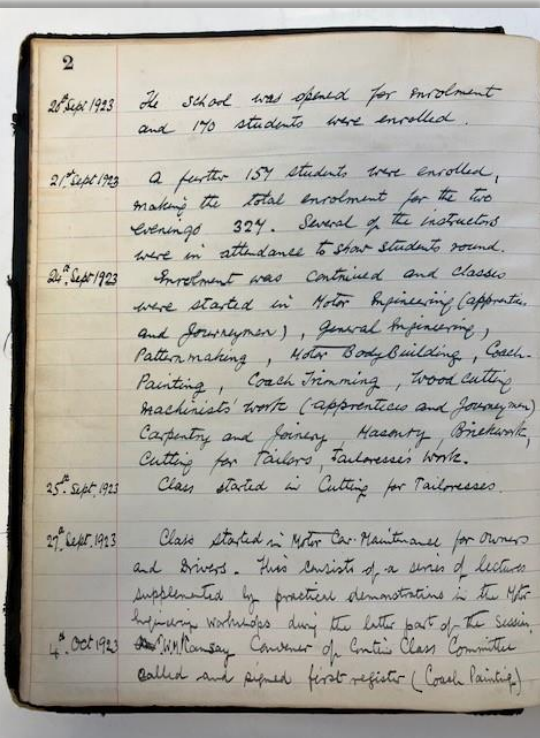 2
20th Sept 1923 The school was opened for enrolment
and 170 students were enrolled.
21st Sept 1923 A further 157 students were enrolled,
making the total enrolment for the two
evenings 327. Several of the instructors
were in attendance to show students round.
24th Sept 1923 Enrolment was continued and classes
were started in Motor Engineering (apprentices
and Journeymen), General Engineering,
Patternmaking, Motor Body Building, Coach-
Painting, Coach Trimming, Wood cutting
Machinists' work (apprentices and Journeymen)
Carpentry and Joinery, Masonry, Brickwork,
Cutting for Tailors, Tailoresses work.
25th Sept. 1923 Class started in Cutting for Tailoresses.
27th Sept. 1923 Class started in Motor Car Maintenance for Owners
and Drivers. This consists of a series of lectures
supplemented by practical demonstrations in the Motor
Engineering workshops during the latter part of the Session.
4th Oct 1923 W.M. Ramsay Convener of Contin Class Committee
called and signed first register (Coach Painting)